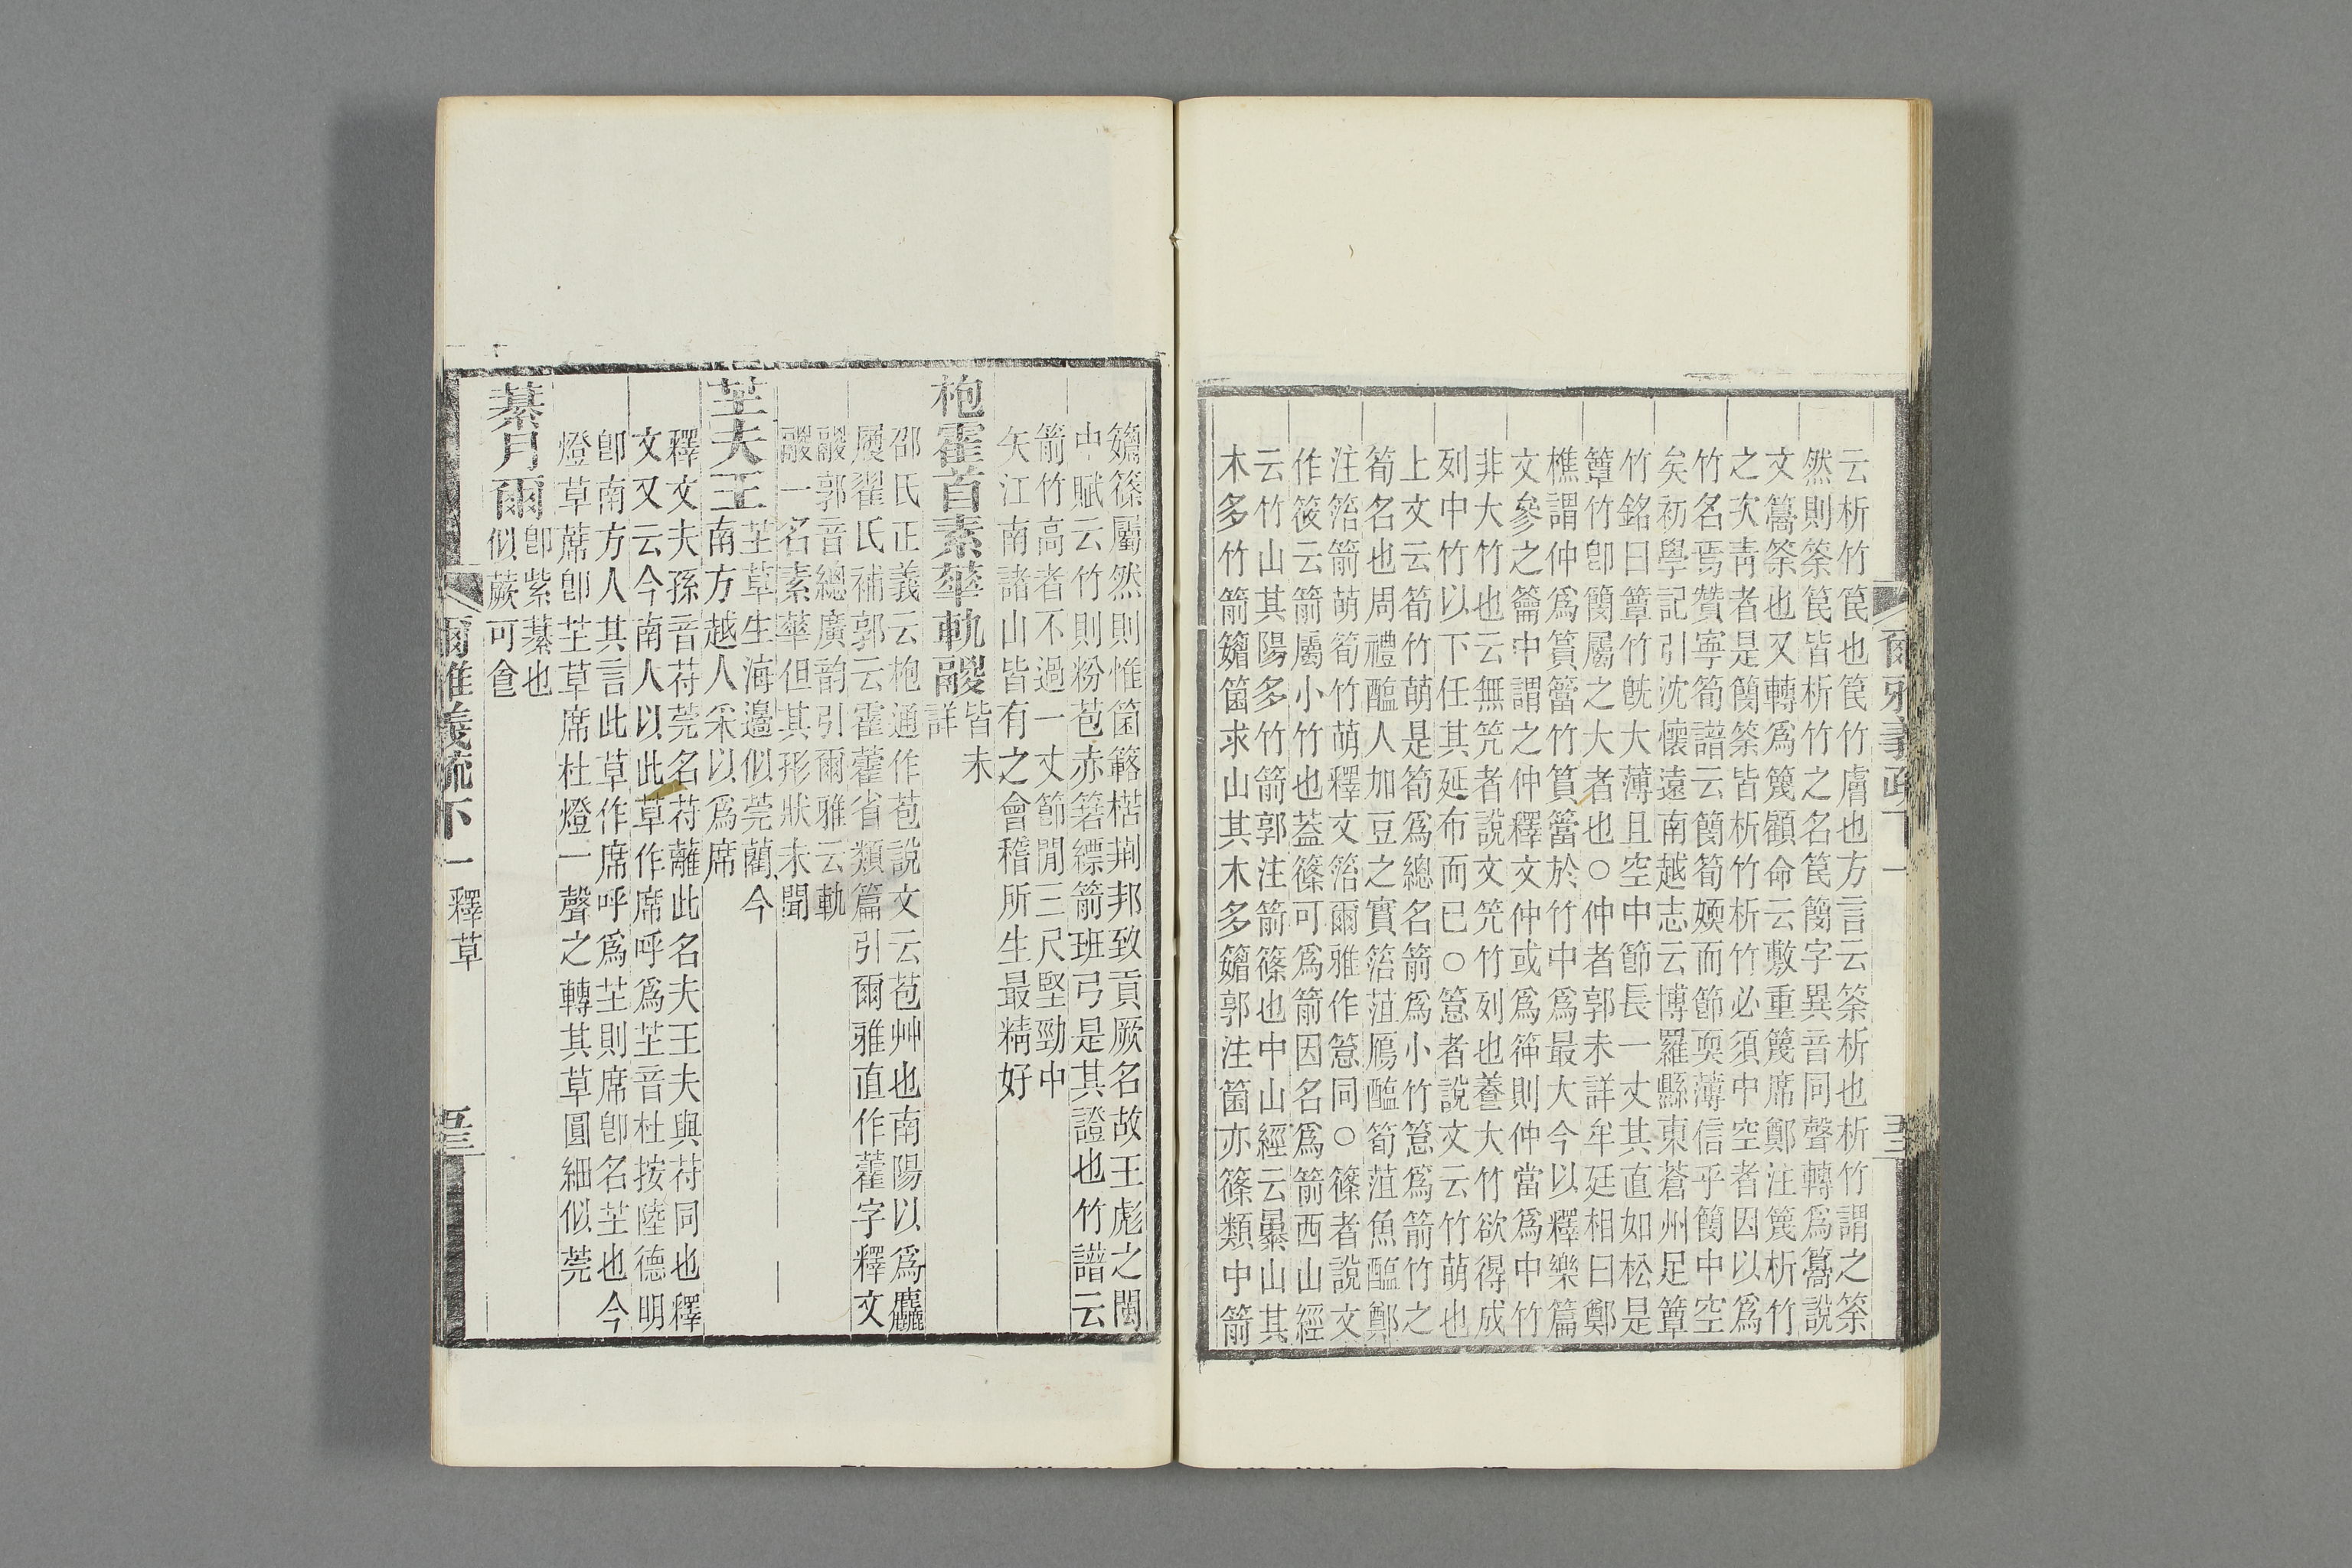 云析竹筤也筤竹膚也方言云筡析也析竹謂之筡
然則筡筤皆析竹之名筤簢字異音同聲轉爲篙說
文篙筡也又轉爲篾顧命云敷重篾席鄭注篾析竹
之次靑者是簢筡皆析竹析竹必須中空者因以爲
竹名焉贊寧筍譜云簢筍媆而節耎薄信乎簢中空
矣初學記引沈懷遠南越志云博羅縣東蒼州足簟
竹銘曰簟竹旣大薄且空中節長一丈其直如松是
簟竹卽簢屬之大者也○仲者郭未詳牟廷相曰鄭
樵謂仲爲篔簹竹篔簹於竹中爲最大今以釋樂篇
文參之籥中謂之仲釋文仲或爲筗則仲當爲中竹
非大竹也云無笐者說文笐竹列也養大竹欲得成
列中竹以下任其延布而已○篒者說文云竹萌也
上文云筍竹萌是筍爲總名箭爲小竹篒爲箭竹之
筍名也周禮醢人加豆之實箈菹鴈醢筍菹魚醢鄭
注箈箭萌筍竹萌釋文箈爾雅作篒同○篠者說文
作筱云箭屬小竹也蓋篠可爲箭因名爲箭西山經
云竹山其陽多竹箭郭注箭篠也中山經云暴山其
木多竹箭䉋箘求山其木多䉋郭注箘亦篠類中箭
爾雅義疏 下一
䉋篠屬然則惟箘簬楛荆邦致貢厥名故王彪之閩
中賦云竹則粉苞赤箬縹箭班弓是其證也竹譜云
箭竹高者不過一丈節閒三尺堅勁中
矢江南諸山皆有之會稽所生最精好
枹霍首素華軌鬷皆未
詳
邵氏正義云枹通作苞說文云苞艸也南陽以爲麤
履翟氏補郭云霍藿省類篇引爾雅直作藿字釋文
鬷郭音總廣韵引爾雅云軌
鬷一名素華但其形狀未聞
芏夫王芏草生海邉似莞藺今
南方越人采以爲席
釋文夫孫音苻莞名苻蘺此名夫王夫與苻同也釋
文又云今南人以此草作席呼爲芏音杜按陸德明
卽南方人其言此草作席呼爲芏則席卽名芏也今
燈草蓆卽芏草席杜燈一聲之轉其草圓細似莞
綦月爾卽紫綦也
似蕨可食
爾雅義疏 下一 釋草